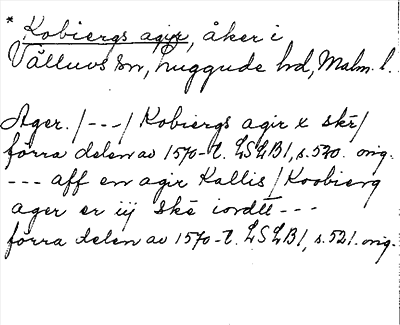 * Kobiergs agir, åker i
Välluvs sn, Luggude hd, Malm. l.
Ager. /---/ Kobiergs agir x skē/
förra delen av 1570-t. LSLB1, s. 520. orig.
--- aff en agir Kallis / Koobierg
ager er iij skē iordtt ---
förra delen av 1570-t. LSLB1, s. 521. orig.